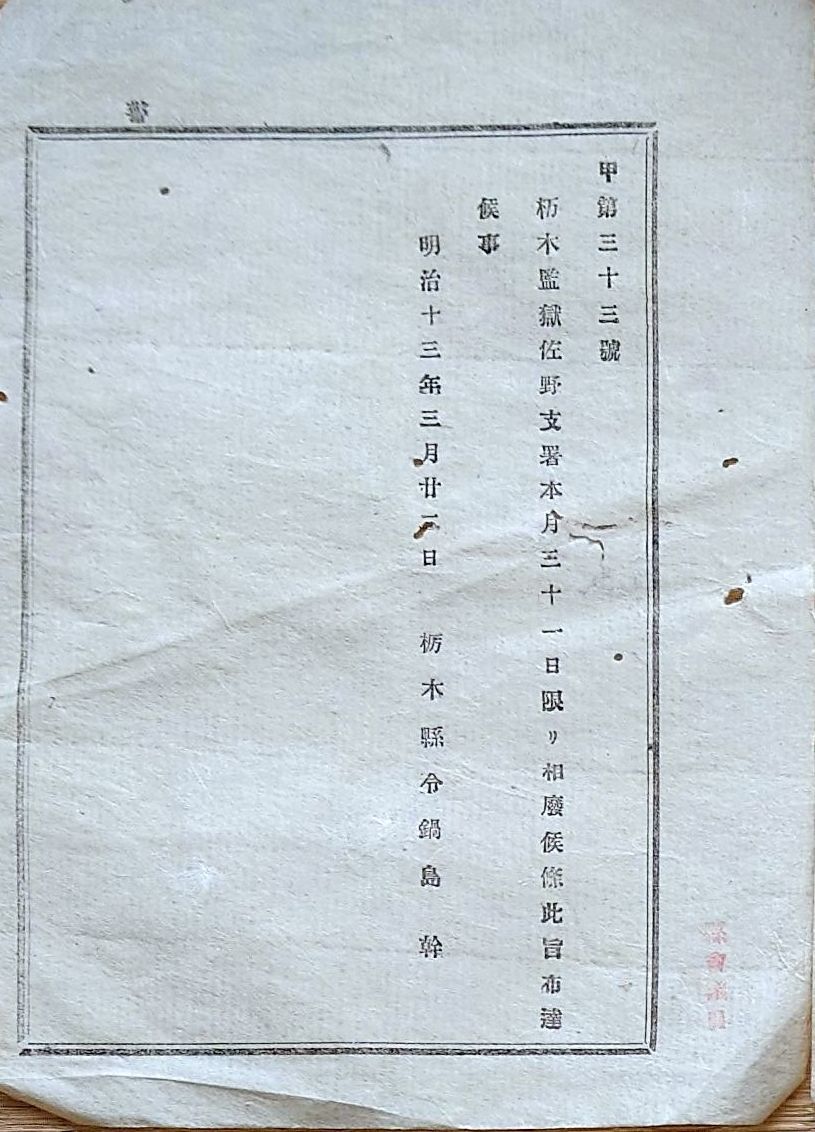 甲第三十三號
栃木監獄佐野支署本月三十一日限リ相廢候條此旨布達
候事
明治十三年三月廿二日　栃木縣令鍋島　幹